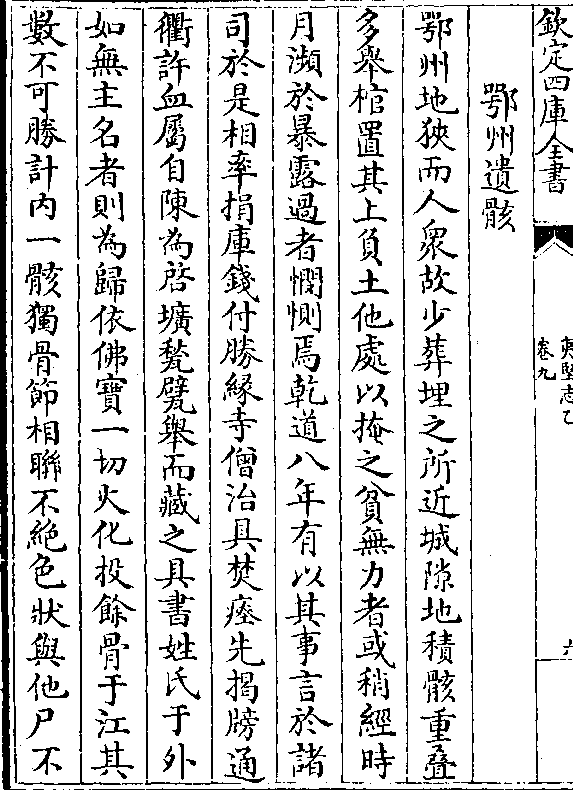 欽定四庫全書
夷堅志乙
卷九
六
鄂州遺骸
鄂州地狹而人衆故少葬埋之所近城隙地積骸重疊
多舉棺置其上負土他處以掩之貧無力者或稍經時
月瀕於暴露過者憫惻焉乾道八年有以其事言於諸
司於是相率捐庫錢付勝緣寺僧治具焚瘞先揭牓通
衢許血屬自陳為啓壙甃甓舉而藏之具書姓氏于外
如無主名者則為歸依佛寶一切火化投餘骨于江其
數不可勝計内一骸獨骨節相聯不絶色狀與他尸不